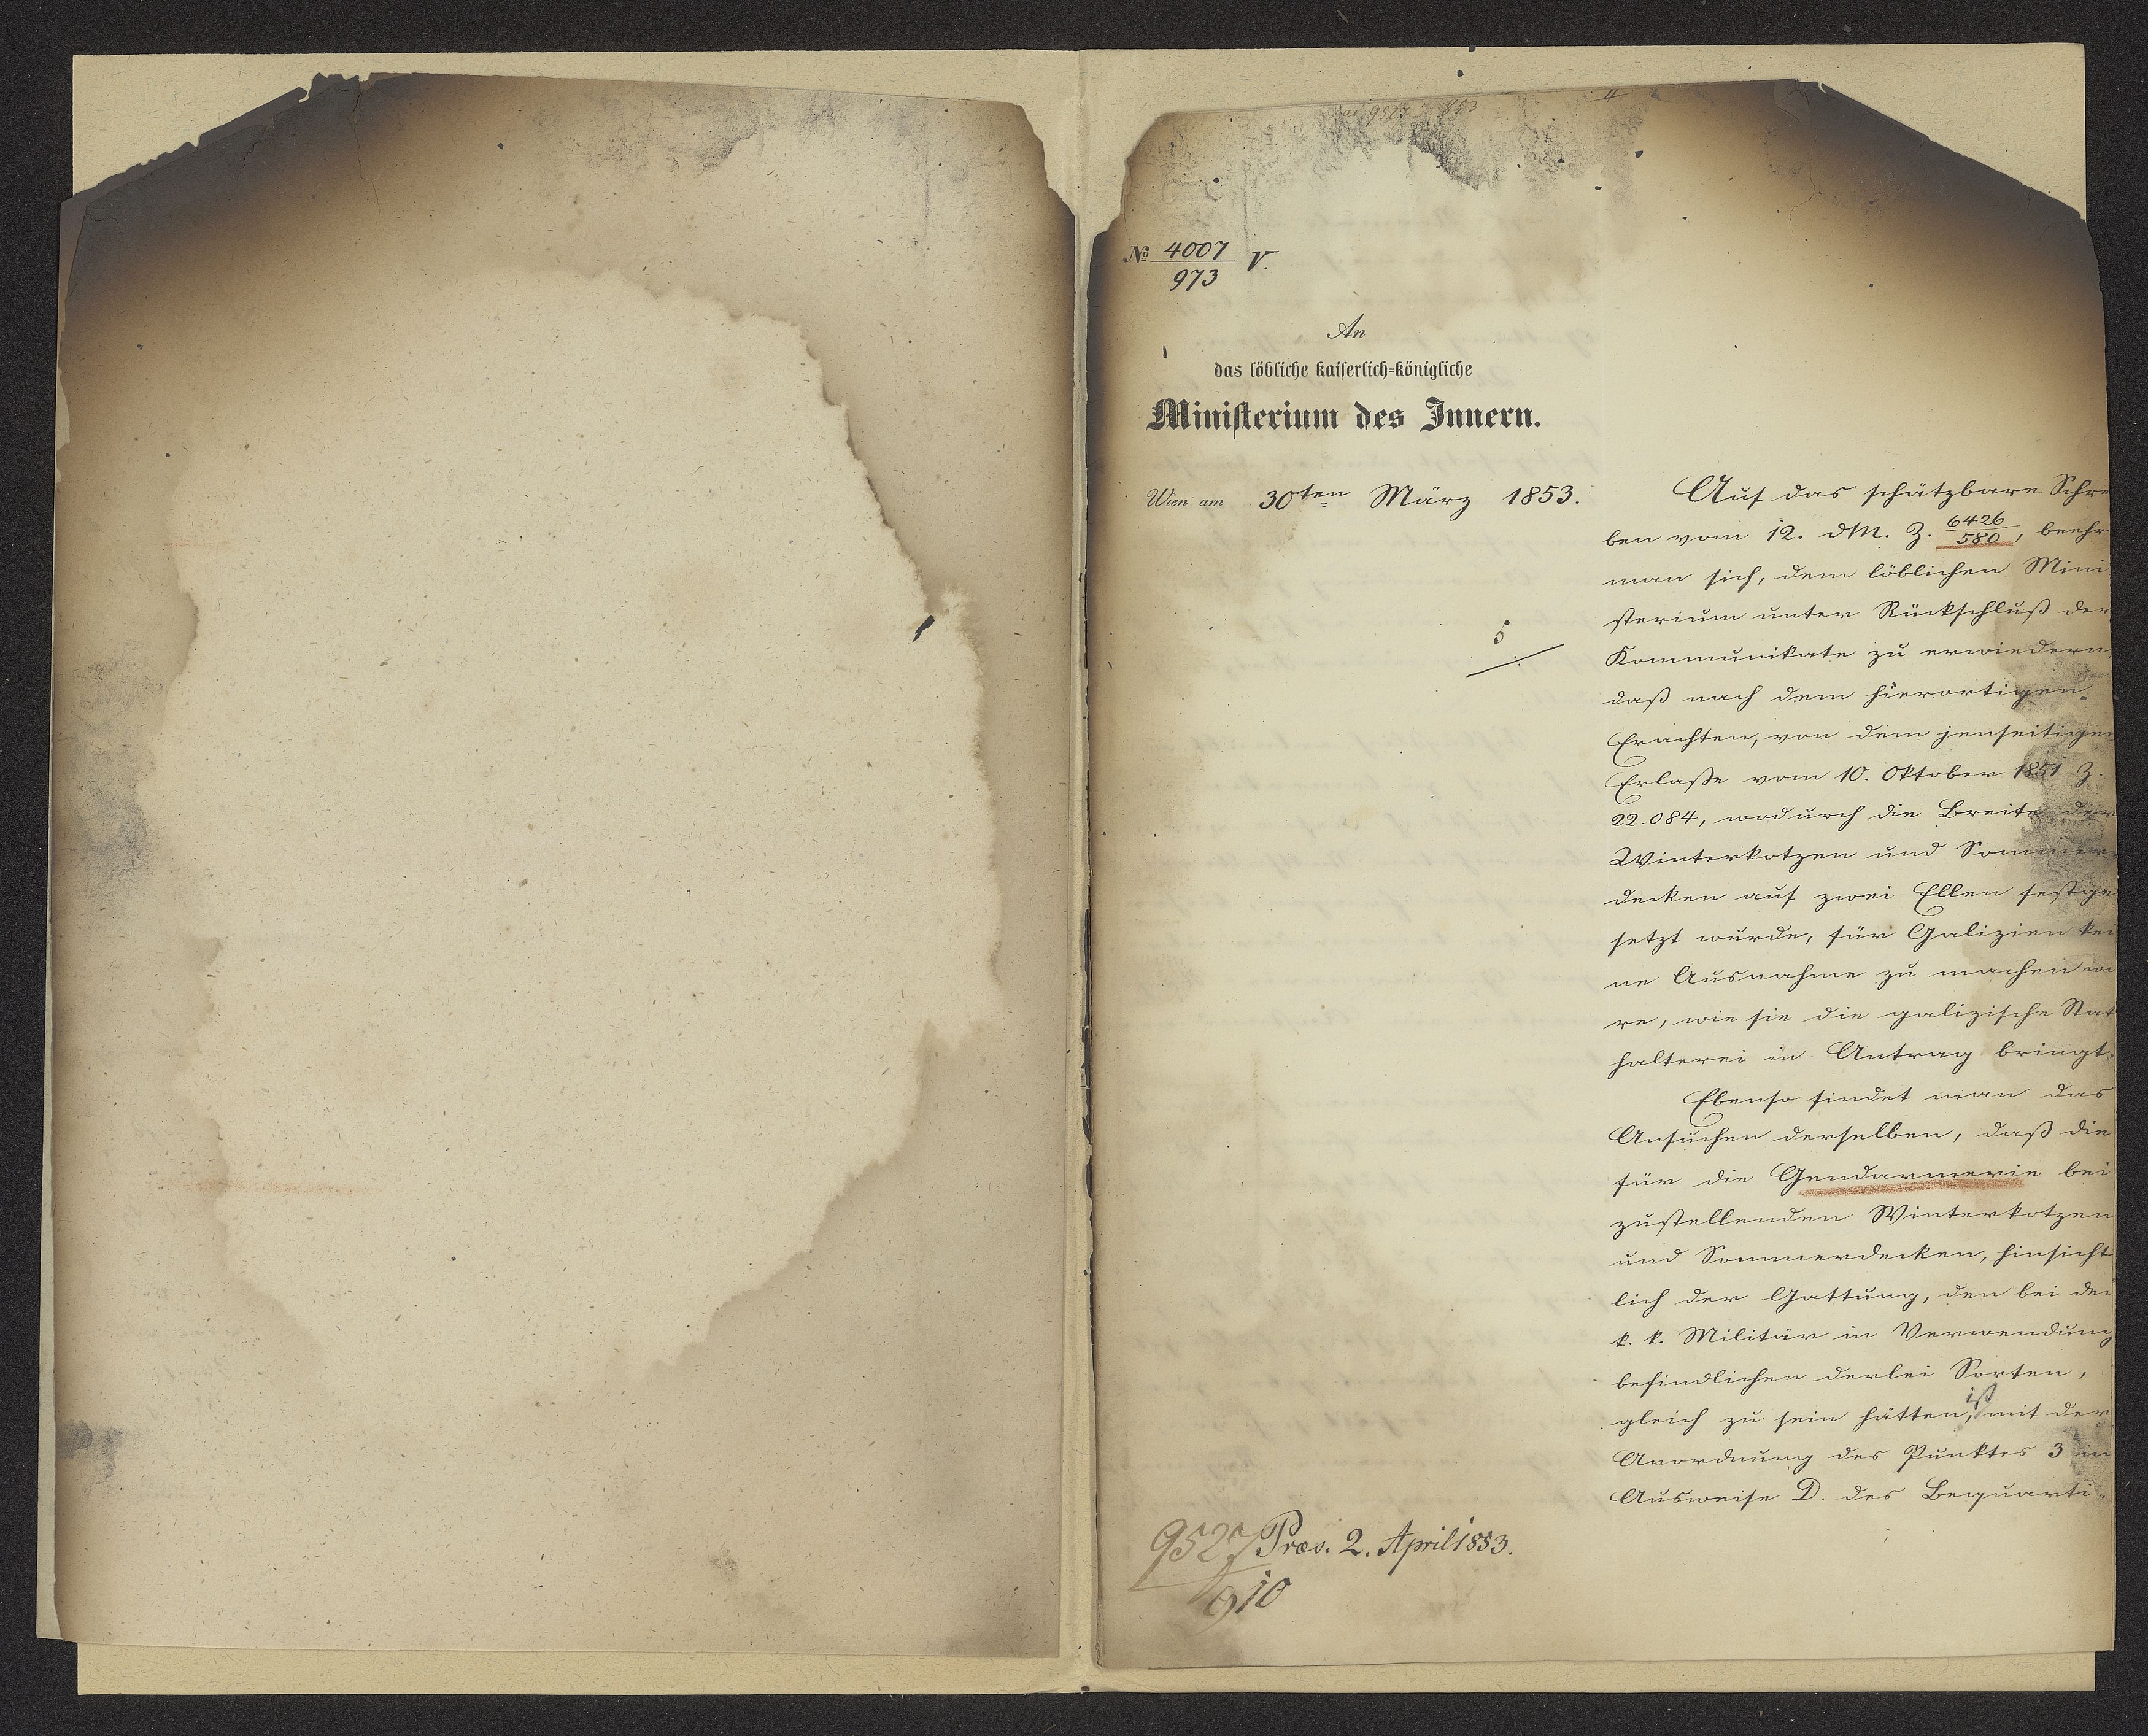 9527 853
4
№ 4007/973 V.
An
das löbliche kaiserlich-königliche
Ministerium des Innern.
Wien am 30ten März 1853.
5
Auf das schätzbare Schre
ben vom 12. dM. Z. 6426/580, beehr
man sich, dem löblichen Mini
sterium unter Rückschluß der
Kommunikate zu erwiedern,
daß nach dem hierortigen
Erachten, von dem jenseitigen
Erlaße vom 10. Oktober 1851 Z.
22.084, wodurch die Breite der
Winterkotzen und Sommer
decken auf zwei Ellen festge
setzt wurde, für Galizien kei
ne Ausnahme zu machen wä
re, wie sie die galizische Stat
halterei in Antrag bringt.
Ebenso findet man das
Ansuchen derselben, daß die
für die Gendarmerie bei
zustellenden Winterkotzen
und Sommerdecken, hinsicht
lich der Gattung, den bei der
k. k. Militär in Verwendung
befindlichen derlei Sorten,
gleich zu sein hätten, ist mit der
Anordnung des Punktes 3 im
Ausweise D. des Bequarti-
9527/910 Præs. 2. April 1853.